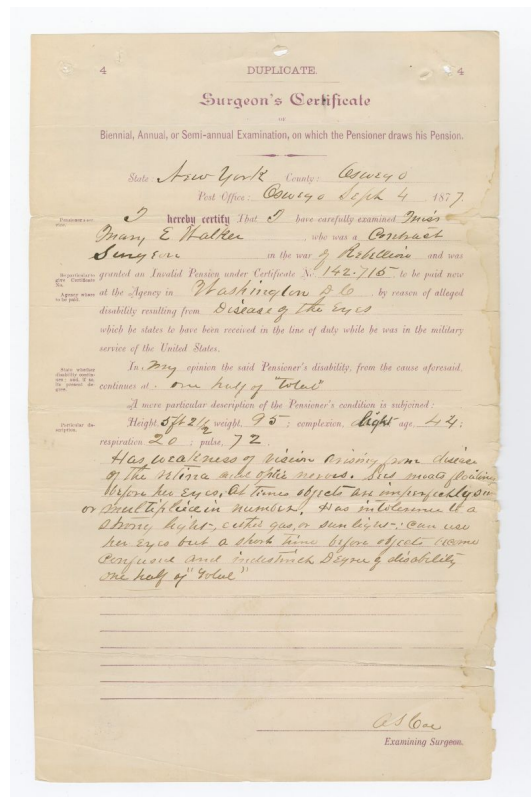 4 DUPLICATE. 4
Surgeon's Certificate
OF
Biennial, Annual, or Semi-annual Examination, on which the Pensioner draws his Pension.
State: New York County: Oswego
Post Office: Oswego Sept 4 1877
I hereby certify That I have carefully examined Miss
Mary E Walker who was a Contract
Surgeon in the war of Rebellion and was
granted an Invalid Pension under Certificate No. 142.715 to be paid now
at the Agency in Washington D C by reason of alleged
disability resulting from Disease of the Eyes
which he states to have been received in the line of duty while he was in the military
service of the United States.
In my opinion the said Pensioner's disability, from the cause aforesaid,
continues at one half of "total"
A more particular description of the Pensioner's condition is subjoined:
Height, 5 ft 2 1/2 weight, 95; complexion, light age, 44;
respiration 20; pulse, 72.
Has weakness of vision arising from disease
of the retina and optic nerves. Sees moats floating
before her Eyes. At times objects are imperfectly
or multiplied in number. Has intolerence to a
strong light, either gas, or sun light: Can use
her Eyes but a short time before objects become
confused and indistinct Degree of disability
one half of "total"
Examining Surgeon.